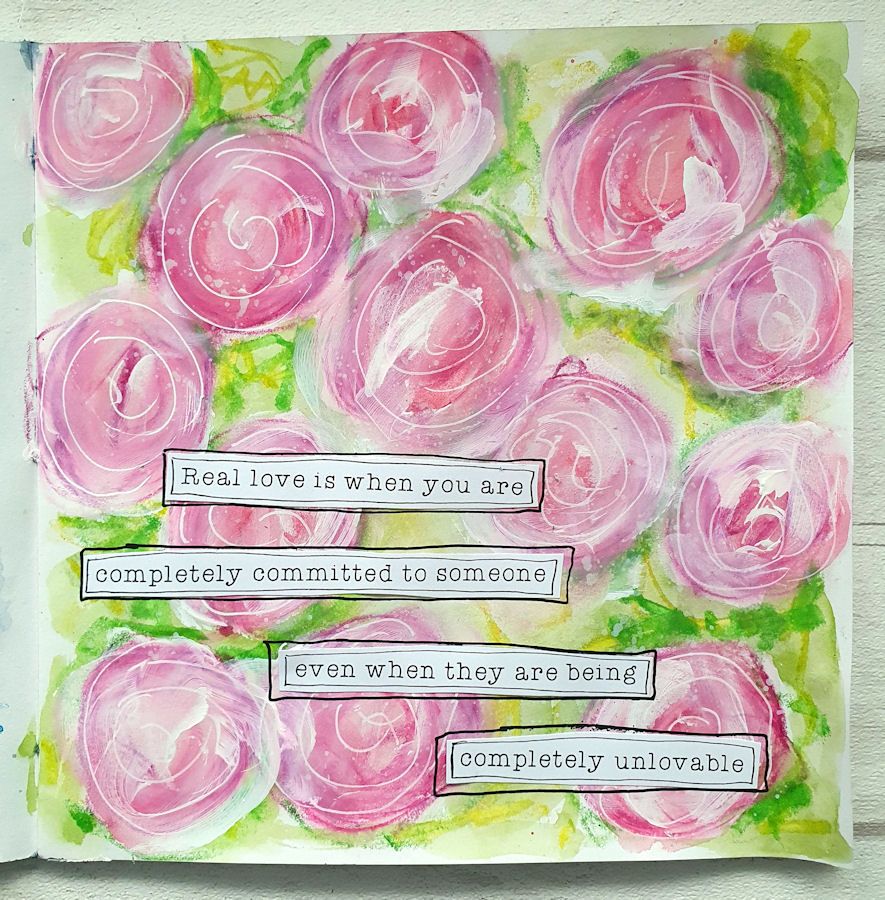 Real love is when you are
completely committed to someone
even when they are being
completely unlovable